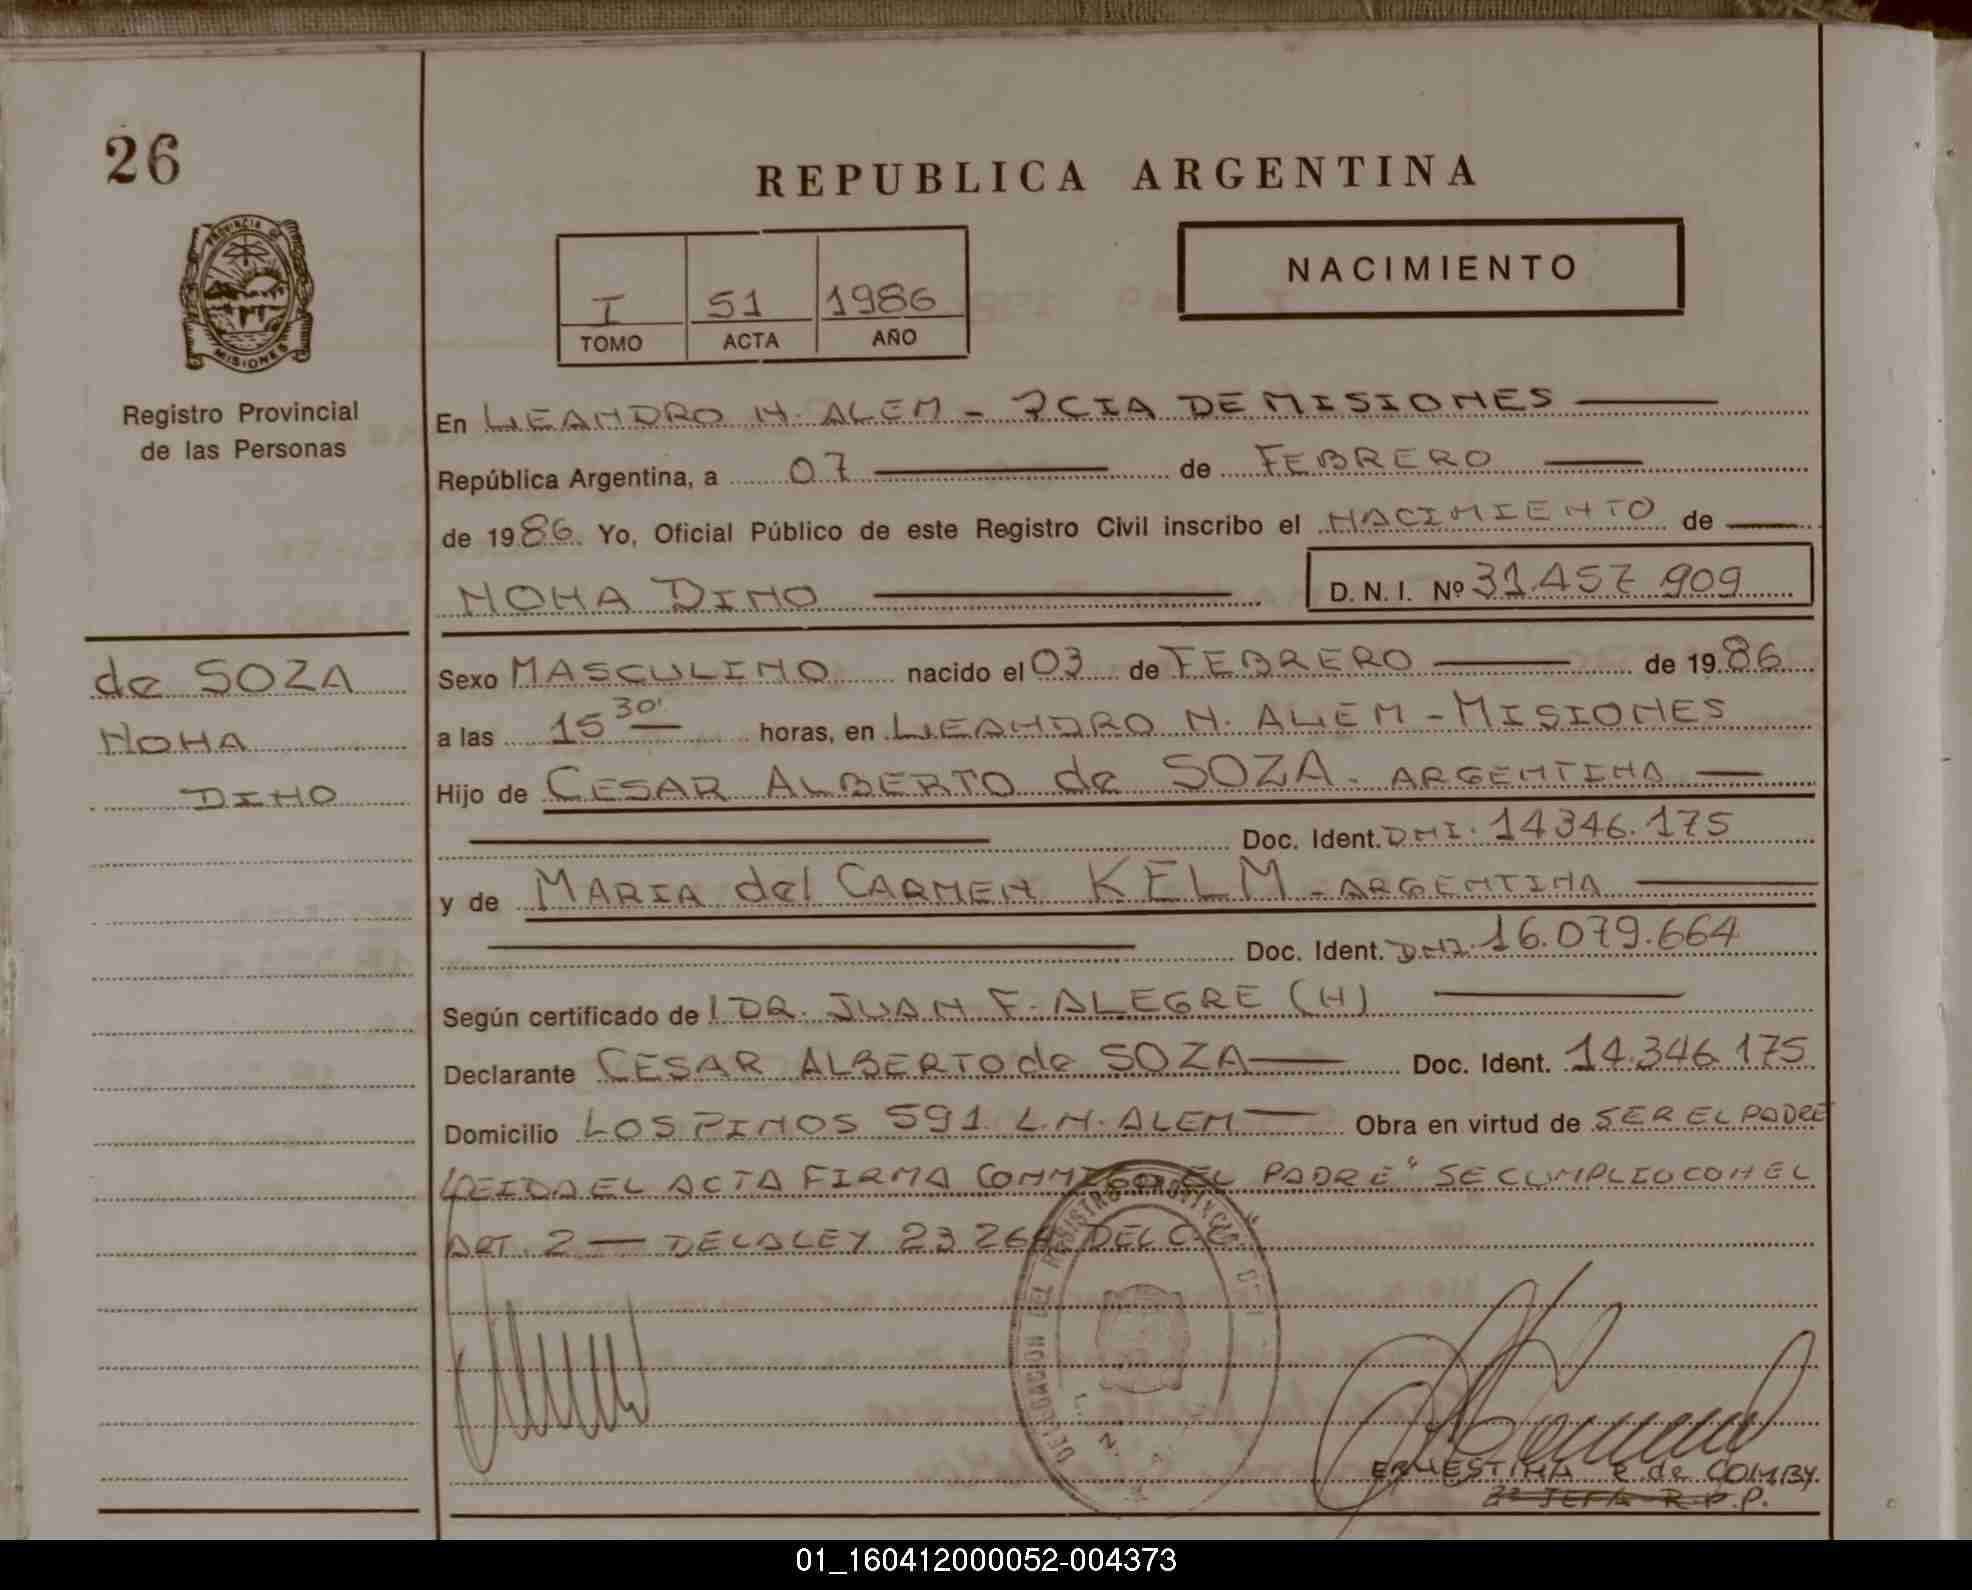 26
REPUBLICA ARGENTINA
PROVINCIA DE
MISIONES
NACIMIENTO
I 51 1986
TOMO ACTA AÑO
Registro Provincial
de las Personas
En LEANDRO N. ALEM - PCIA DE MISIONES
República Argentina, a 07 de FEBRERO
de 1986. Yo, Oficial Público de este Registro Civil inscribo el NACIMIENTO de
NOHA DINO D. N. I. Nº 31.457.909
de SOZA
NOHA
DINO
Sexo MASCULINO nacido el 03 de FEBRERO de 1986
a las 15 30' horas, en LEANDRO N. ALEM - MISIONES
Hijo de CESAR ALBERTO de SOZA. ARGENTINA
Doc. Ident. DNI. 14346.175
y de MARIA del CARMEN KELM - ARGENTINA
Doc. Ident. DNI. 16.079.664
Según certificado de l DR. JUAN F. ALEGRE (H)
Declarante CESAR ALBERTO de SOZA Doc. Ident. 14.346.175
Domicilio LOS PINOS 591 L.N. ALEM Obra en virtud de SER EL PADRE
LEIDA EL ACTA FIRMA CONMIGO EL PADRE" SE CUMPLIO CON EL
ART. 2 — DE LA LEY 23.264 DEL C.C."
DELEGACION DEL REGISTRO PROVINCIAL DE
L. N.
ERNESTINA R. de COMBY.
2ª JEFA R.P.P.
01_160412000052-004373